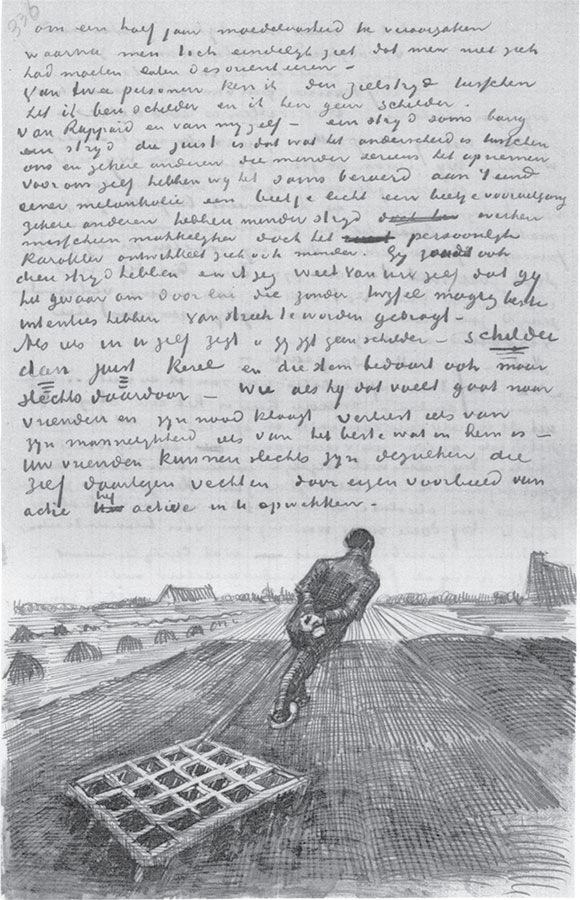 336
om een half jaar moedeloosheid te veroorzaken
waarna men toch eindelijk ziet dat men niet zich
had moeten laten desorienteeren –
Van twee personen ken ik den zielstryd tusschen
het ik ben schilder en ik ben geen schilder.
Van Rappard en van myzelf – een stryd soms bang
een stryd die juist is dat wat het onderscheid is tusschen
ons en zekere anderen die minder serieus het opnemen
voor ons zelf hebben wy het soms beroerd aan 't eind
eener melankolie een beetje licht een beetje vooruitgang
zekere anderen hebben minder stryd werken
misschien makkelyker doch het persoonlyk
karakter ontwikkelt zich ook minder. Gy zoudt ook
dien stryd hebben en ik zeg weet van uw zelf dat gy
het gevaar om door lui die zonder twyfel magnifieke
intenties hebben van streek te worden gebragt –
Als iets in U zelf zegt „gy zyt geen schilder – schilder
dan juist kerel en die stem bedaart ook maar
slechts daardoor – wie als hy dat voelt gaat naar
vrienden en zyn nood klaagt verliest iets van
zyn mannelykheid iets van het beste wat in hem is –
Uw vrienden kunnen slechts zyn dezulken die
zelf daartegen vechten door eigen voorbeeld van
actie het active in U opwekken –